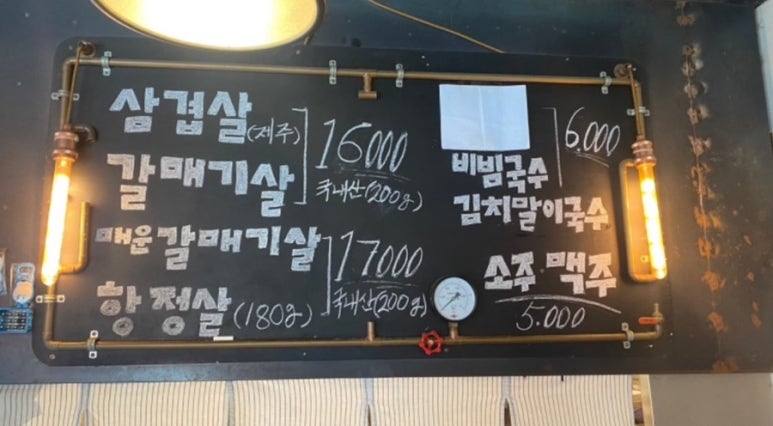 삼겹살(제주)
갈매기살
16000
국내산(200g)
매운갈매기살
항정살(180g)
17000
국내산(200g)
비빔국수
김치말이국수
6.000
소주 맥주
5.000